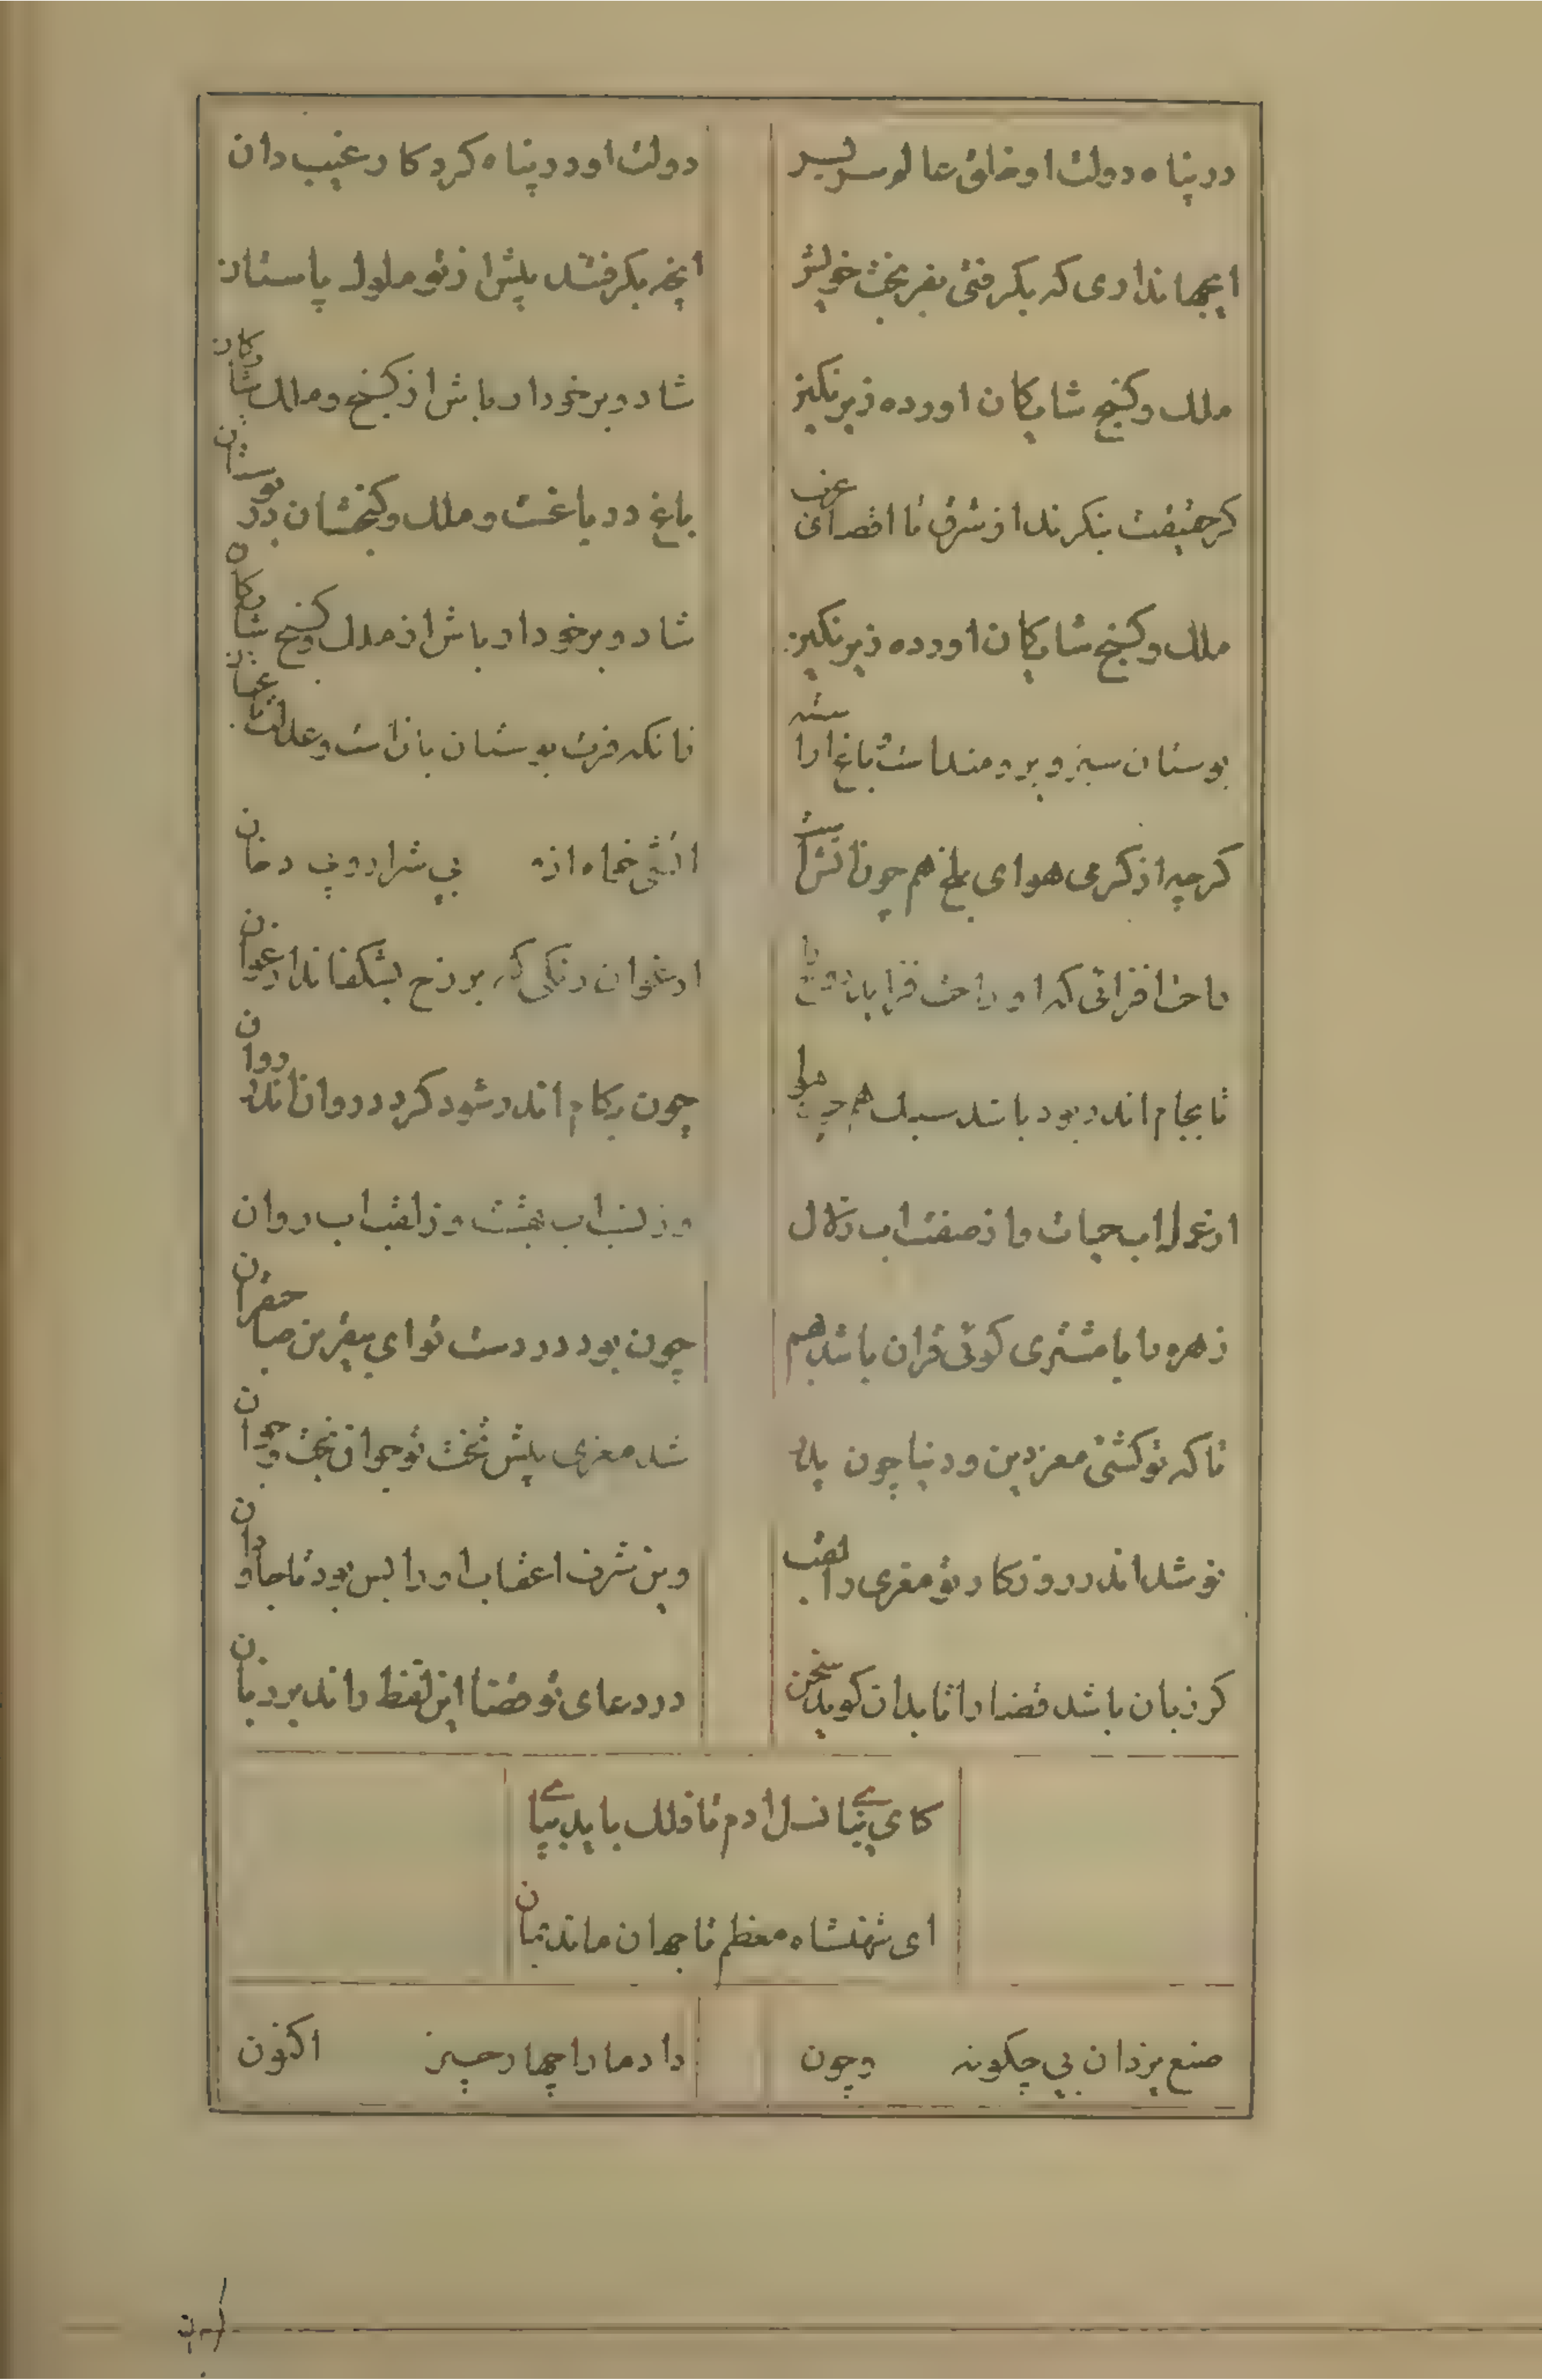 در پناه دولت او خلق عالم سر بسر
دولت او در پناه کردکار غیب دان
ای جهانداری که بکرفتی بفر بخت خویش
انچه بکرفتند پیش از تو ملوک پاستان
ملک و کنج شایکان اورده زیر نکین
شاد و برخوردار باش از کنج و ملک شایکان
کر حقیقت بنکرند از شرق تا اقصای غرب
باغ در باغست و ملک و کنجشان در بوستان
ملک و کنج شایکان اورده زیر نکین
شاد و برخوردار باش از ملک و کنج شایکان
بوستان سبز و برومند است باغ اراسته
زانکه فرت بوستان بانست و عدلت باغبان
کرچه از کرمی هوای بلخ هم چون اتش است
اتشی خواه از بی شرار و بی دخان
راحت افزائی که او راحت فزاید روح را
ارغوان رنکی که بر رخ بشکفاند ارغوان
تا بجام اندر بود باشد سبک هم چون هوا
چون بکام اندر شود کردد روان اندر روان
از غزل اب حیات و از صفت اب زلال
وز لب اب بهشت و ز لقب اب روان
زهره با با مشتری کوئی قران باشد بهم
چون بود در دست تو ای بیقرین صاحبقران
تا که تو کشتی معز دین و دنیا چون پدر
شد معزی پیش تخت تو جوان بخت و جوان
نو شد اندر روزکار تو معزی را لقب
وین شرف اعقاب او را بس بود تا جاودان
کر زبان باشد قضا را تا بدان کوید سخن
در دعای تو قضا این لفظ راند بر زبان
کای بنیا نسل ادم تا فلک باید بپای
ای شهنشاه معظم تا جهان ماند بمان
صنع یزدان بی چکونه و چون
داد ما را چهار چیز اکنون